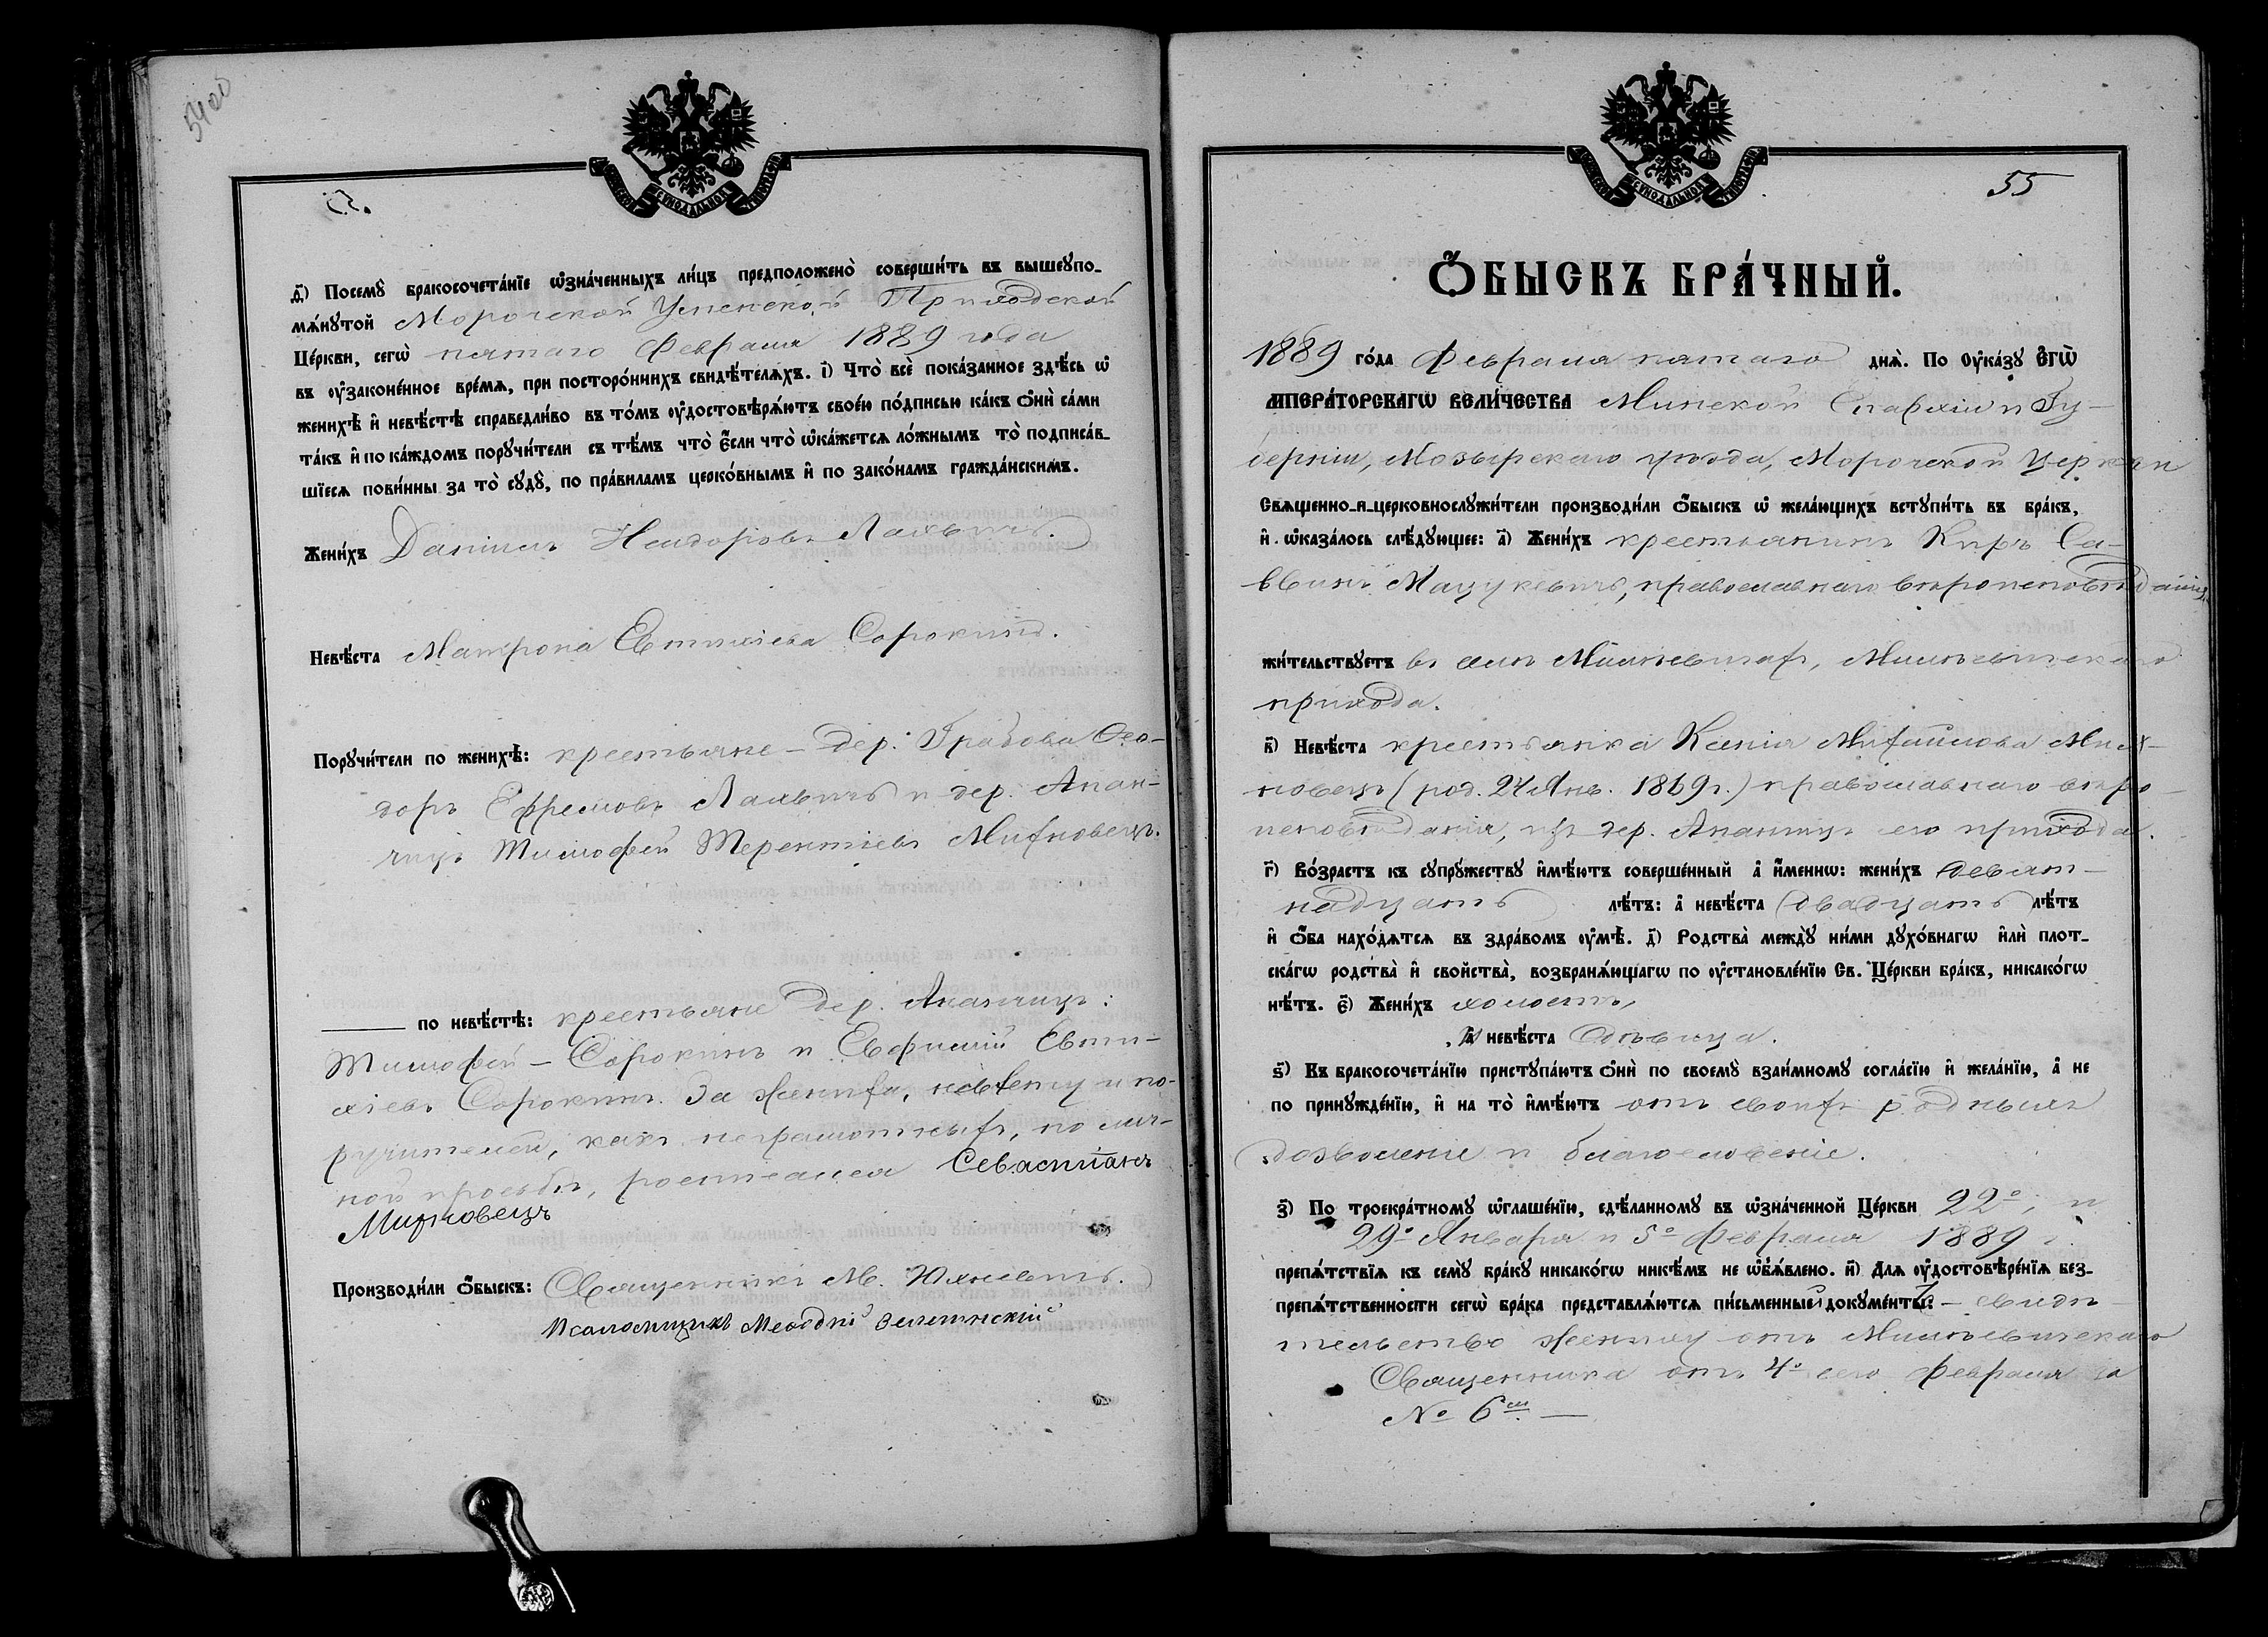 5400
ѳ҃) Посемꙋ бракосочета́нїе ѡ҆зна́ченныхъ ли́цъ предположено̀ соверши́ть въ вышеꙋпо-
мѧ́нꙋтой Морочской Успенской Приходской
Це́ркви, сегѡ̀ пятаго Февраля 1889 года
въ ᲂу҆зако́ненное вре́мѧ, при посторо́ннихъ свидѣ́телѧхъ. і҃) Что̀ всѐ пока́занное здѣ́сь ѡ҆
женихѣ̀ и҆ невѣ́стѣ справедли́во въ то́мъ ᲂу҆достовѣрѧ́ютъ свое́ю по́дписью ка́къ ѻ҆нѝ са́ми
та́къ и҆ по ка́ждомъ порꙋчи́тели съ тѣ́мъ что̀ є҆́сли что̀ ѡ҆ка́жетсѧ ло́жнымъ то̀ подписа́в-
шїесѧ пови́нны за то̀ сꙋдꙋ̀, по пра́виламъ церко́внымъ и҆ по зако́намъ гражда́нскимъ.
Жени́хъ Данiилъ Исидоровъ Лахвичъ.
Невѣ́ста Матрона Евтихiева Сорокина.
Порꙋчи́тели по женихѣ̀: крестьяне – дер. Грабова Ѳео-
доръ Ефремовъ Лахвичъ и дер. Анан-
чицъ Тимоѳей Терентiевъ Михновецъ.
по невѣ́стѣ: крестьяне дер. Ананчицъ:
Тимоѳей – Сорокинъ и Евѳимiй Евти-
хiевъ Сорокинъ. За жениха, невѣсту и по-
ручителей, какъ неграмотныхъ, по лич-
ной просьбѣ, росписался Севастiанъ
Михновецъ
Производи́ли ѻ҆́быскъ: Священникъ М. Юхневичъ.
Псаломщикъ Меѳодiй
55
Ѻ҆́БЫСКЪ БРА́ЧНЫЙ.
1889 го́да Февраля пятаго днѧ̀. По Оу҆ка́зꙋ Є҆гѡ̀
И҆МПЕРА́ТОРСКАГѠ ВЕЛИ́ЧЕСТВА Минской Епархiи и Гу-
бернiи, Мозырскаго уѣзда, Морочской Церкви
Свѧще́нно-и-церковнослꙋжи́тели производи́ли ѻ҆́быскъ ѡ҆ жела́ющихъ встꙋпи́ть въ бра́къ,
и҆ ѡ҆каза́лось слѣ́дꙋющее: а҃) Жени́хъ крестьянинъ Киръ Са-
ввинъ Мацукевичъ, православнаго вѣроисповѣданiя,
жи́тельствꙋетъ въ селѣ Милѣвичахъ, Милѣвичскаго
прихода.
в҃) Невѣ́ста крестьянка Ксенiя Михайлова Мих-
новецъ (род. 24 Янв. 1869 г.) православнаго вѣро-
исповѣданiя, изъ дер. Ананчицъ сего прихода.
г҃) Во́зрастъ къ сꙋпрꙋ́жествꙋ и҆мѣ́ютъ соверше́нный а҆ и҆́менно: жени́хъ девят-
надцать лѣ́тъ: а҆ невѣ́ста двадцать лѣ́тъ
и҆ ѻ҆́ба нахо́дѧтсѧ въ здра́вомъ ᲂу҆мѣ̀. д҃) Родства̀ междꙋ̀ ни́ми дꙋхо́внагѡ и҆лѝ плот-
ска́гѡ родства̀ и҆ сво́йства̀, возбранѧ́ющагѡ по ᲂу҆становле́нїю Св. Це́ркви бра́къ, никако́гѡ
нѣ́тъ. є҃) Жени́хъ холостъ,
а҆ невѣ́ста дѣвица.
ѕ҃) Къ бракосочета́нїю пристꙋпа́ютъ ѻ҆нѝ по своемꙋ̀ взаи́мномꙋ согла́сїю и҆ жела́нїю, а҆ не
по принꙋжде́нїю, и҆ на то̀ и҆мѣ́ютъ отъ своихъ родныхъ
дозволенiе и благословенiе.
з҃) По троекра́тномꙋ ѡ҆глаше́нїю, сдѣ́ланномꙋ въ ѡ҆зна́ченной Це́ркви 22º, и
29º Января и 5º Февраля 1889 г.
препѧ́тствїѧ къ семꙋ̀ бра́кꙋ никако́гѡ никѣ́мъ не ѡ҆бъѧ́влено. и҃) Длѧ ᲂу҆достовѣре́нїѧ без-
препѧ́тственности сегѡ̀ бра́ка представлѧ́ютсѧ пи́сьменный докꙋме́нтъ: – свидѣ-
тельство жениху отъ Милѣвичскаго
Священника отъ 4º сего Февраля за
№ 6ᵐ. —